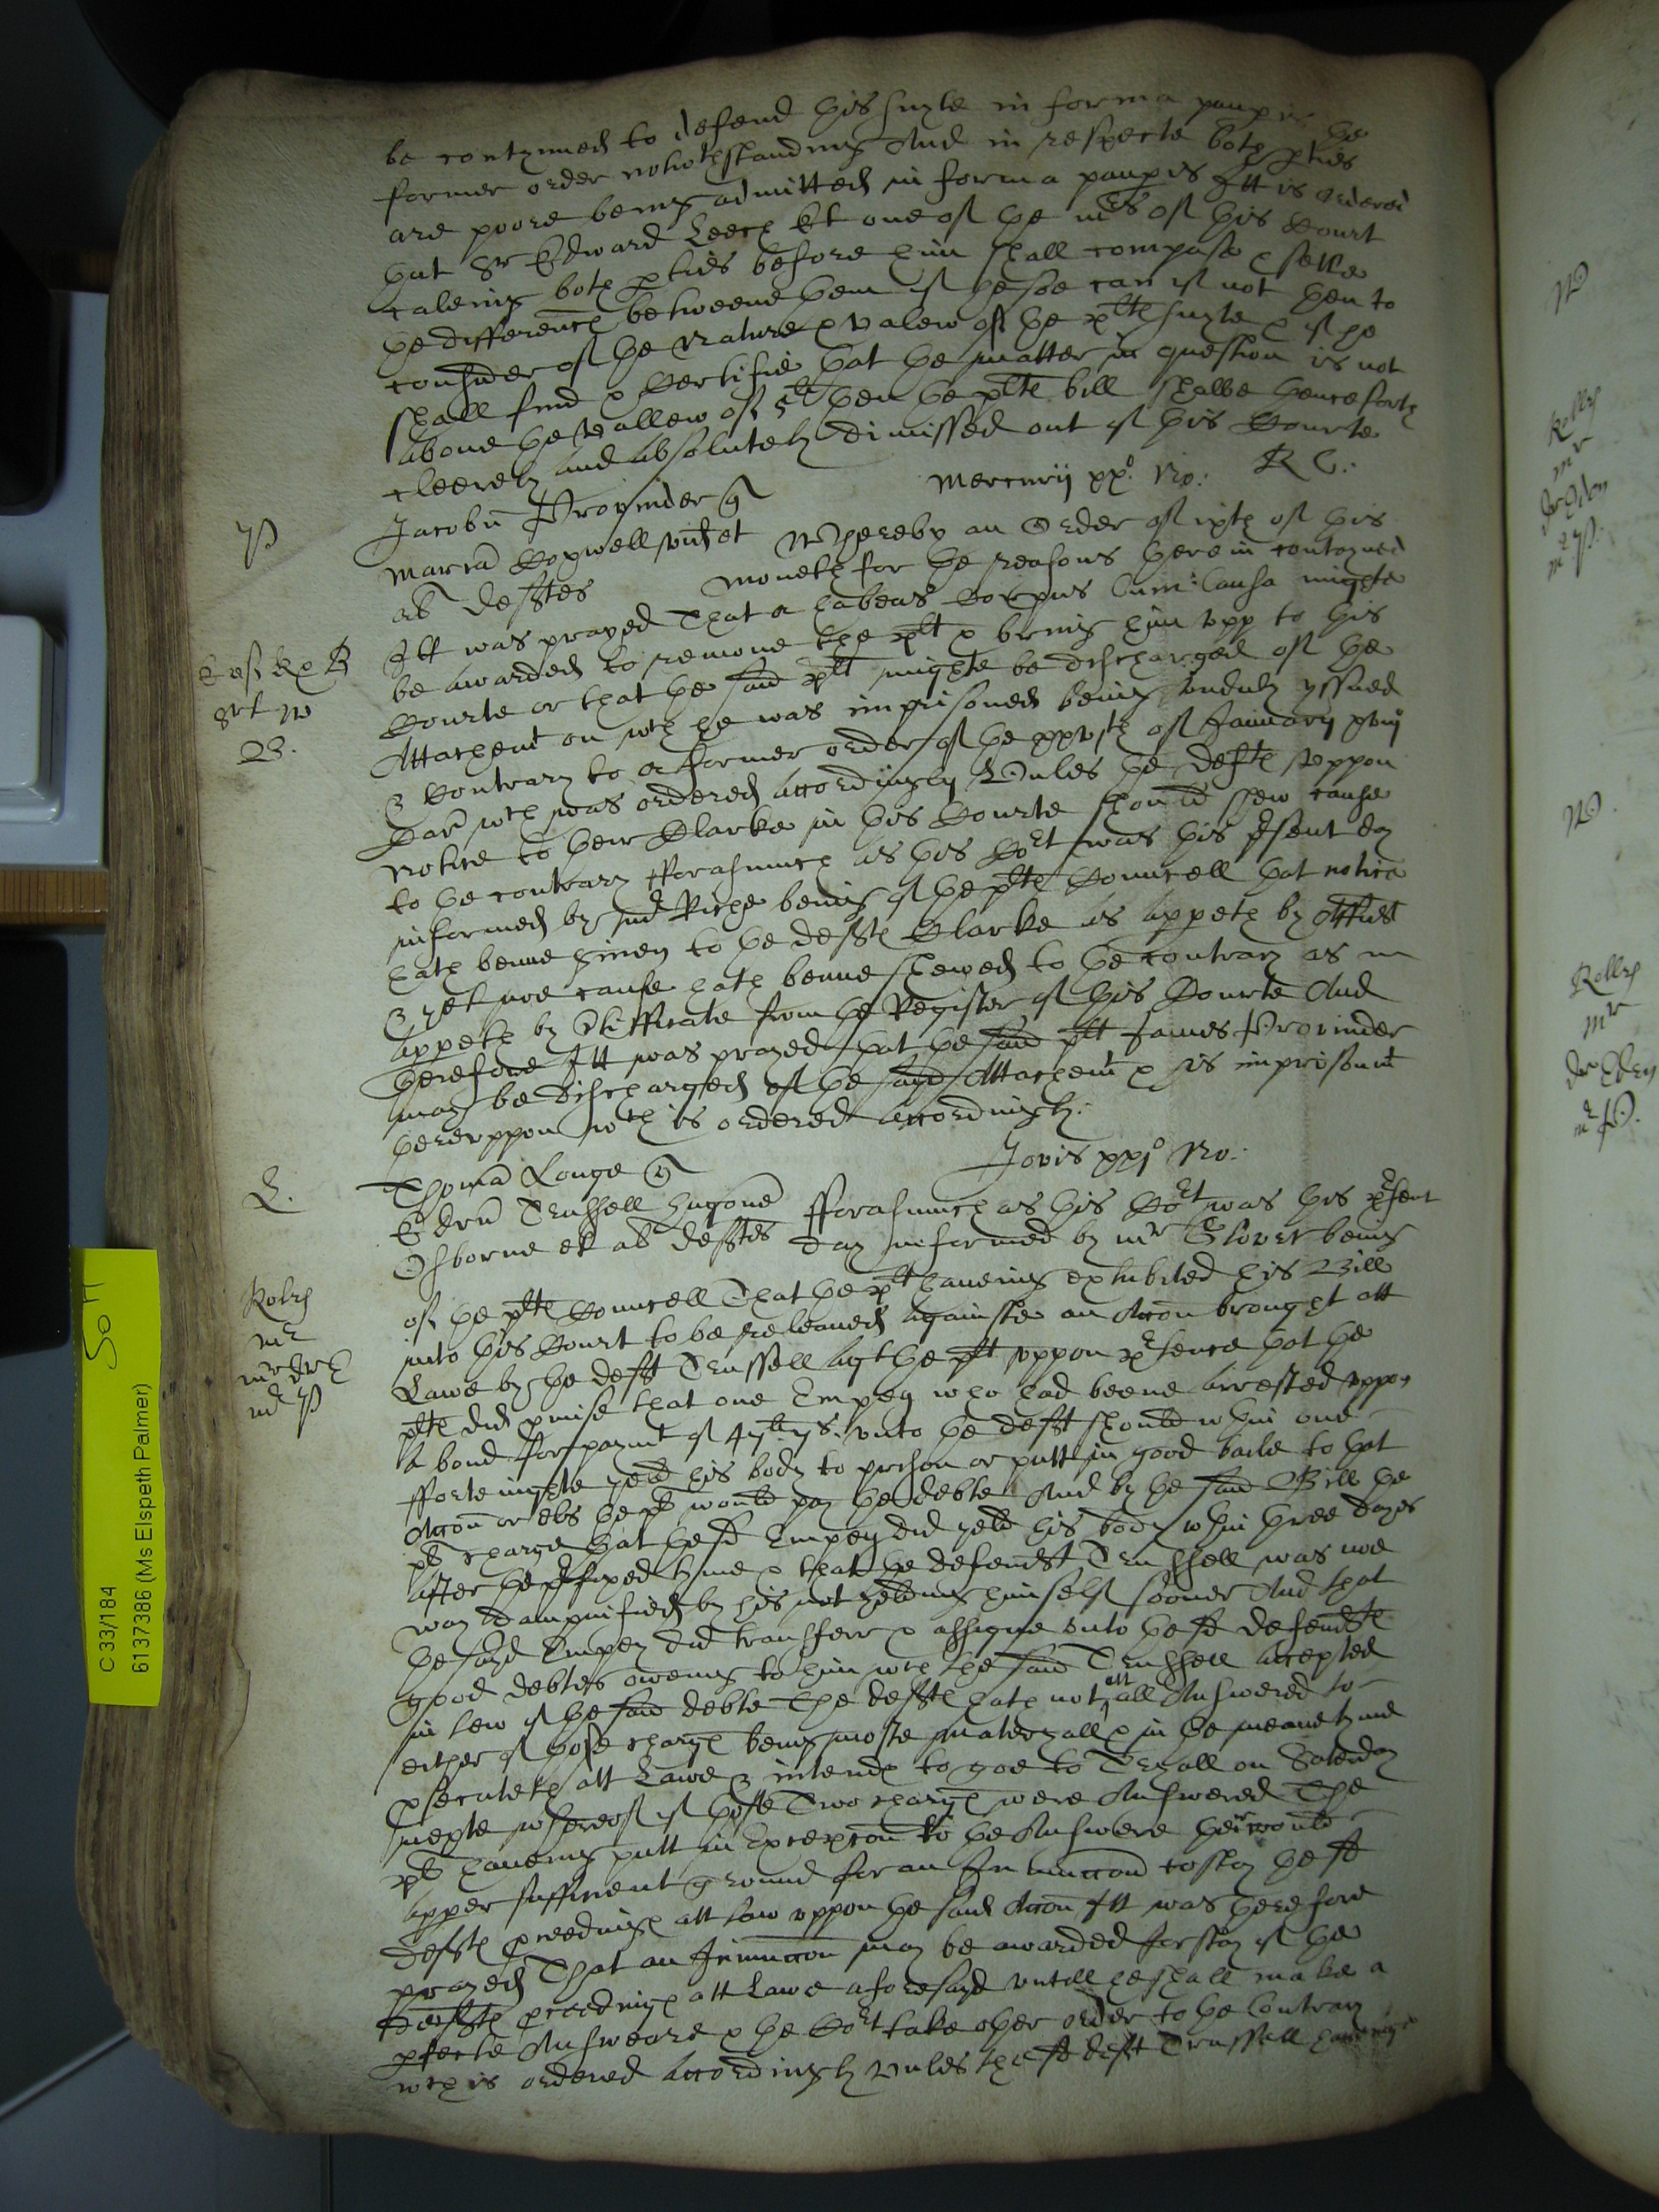 be contynued to defend his suyte in forma paupis the
former order notwthstanding And in respecte both pties
are poore being admitted in forma paupis Itt is ordered
that Sr Edward Leech kt one of the mrs of this Court
caleing both pties before him shall compose & settle
the difference betweene them if he soe can if not then to
consider of the nature & valew of the plts suyte & if he
shall find & Certifie that the matter in question is not
above the vallew of 5li then the plts bill shalbe henceforth
cleerely and absolutely dimissed out of this Courte
Mercurij xxo No: R C:
P
Jacobu Provinder q
Maria Hopwell vid et Whereby an Order of ixth of this
al defftes moneth for the reasons therein contayned
Itt was prayed That a habeas Corpus Cum Causa mighte
be awarded to remove the plt & bring him upp to this
Courte or that the said plt mighte be discharged of the
Attachemt on wch he was imprisoned being unduly yssued
& Contrary to a former order of the xxvjth of January
wch was ordered accordingly Unles the defts uppon
notice to their Clarke in this Courte should shew cause
to the contrary fforasmuch as this Cort was this psent day
informed by mr Riche being of the plts Councell that notice
hath beene given to the defts Clarke as appeth by Affidt
& yet noe cause hath beene shewed to the contrary as
appeth by Certifficate from the Register of this Courte And
therefore Itt was prayed that the said plt James Provinder
may be discharged of the sayd Attachemt & his imprisonmt
thereuppon wch is ordered accordingly.
Jovis xxjo No:
L.
Thoma Longe q
Edru Trussell Hugone fforasmuch as this Cort was this psent
Osborne et al defftes day informed by mr Glover being
of the plts Councell That the plt haveing exhibited his Bill
into this Court to be releaved againste an Accon brought att
Lawe by the deft Trussell agt the plt uppon ptence that the
plt did pmise that one Empey who had beene arrested uppon
a bond for paymt of 47li 7s. unto the deft should wthin one
ffortenighte yeld his body to prison or putt in good baile to that
Accon or els the plt would pay the debte And by the said Bill the
plt charge that the sd Empey did yeld his body wthin three dayes
after the pfixed tyme & that the defendt Trussell was noe
way dampnified by his not yelding himself sooner And that
the sayd Empey did transferr & assigne unto the sd defendte
good debtes oweing to him wch the said Trussell accepted
in lew of the said debte The defte hath not att all Answered to
either of those charge being moste materyall & in the meane tyme
psecuteth att Lawe & intende to goe to Tryall on Saterday
nexte whereof if those Two charge were Answered The
plt haveing putt in Excepcon to the Answere there would
apper sufficient ground for an Iniunccon to stay the sd
defts pceedinge att law uppon the said Accon Itt was therefore
prayed That an Iniunccon may be awarded for stay of the
defts pceedinge att Lawe aforesayd untill he shall make a
pfecte Answeare & the Cort take other order to the Contrary
wch is ordered accordingly unles the sd deft Trussell haveing
C 33/184
6137386 (Ms Elspeth Palmer)